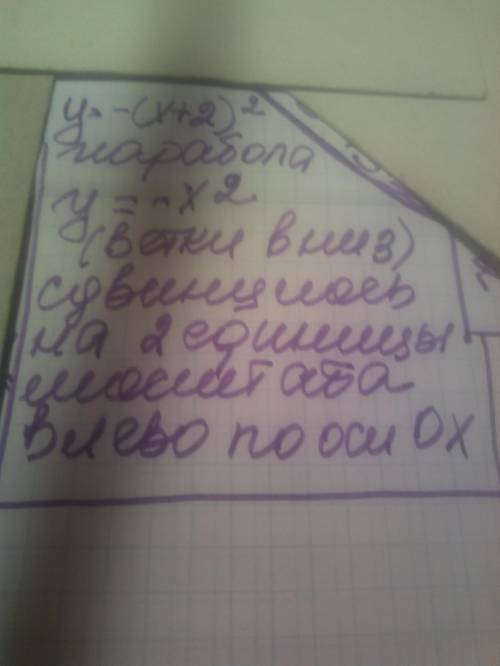 y = -(x+2)²
парабола
y = -x²
(ветки вниз)
сдвинулось
на 2 единицы
масштаба
влево по оси Ox